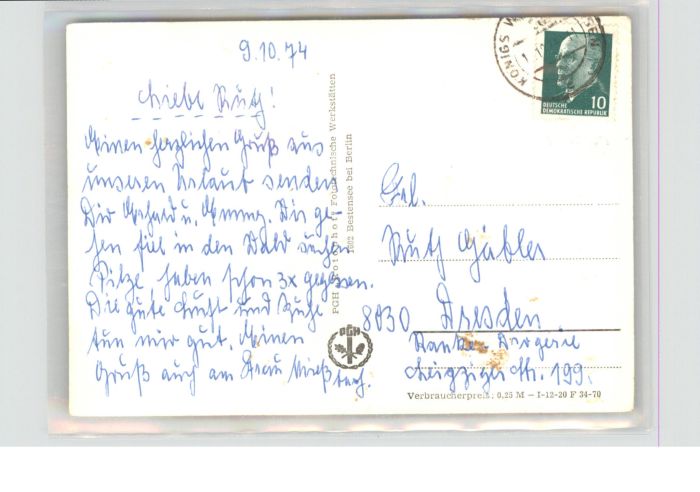 9.10.74
Liebe Ruth!
Einen herzlichen Gruß aus
unseren Urlaub senden
Dir Gerhard u. Wir ge-
hen viel in den Wald suchen
Pilze haben schon 3x gegessen.
Die gute Luft und Ruhe
tun mir gut. Einen
Gruß auch an Frau
PGH Rotophot, Fototechnische Werkstätten
1602 Bestensee bei Berlin
PGH
KÖNIGS WUSTERHAUSEN
DEUTSCHE
DEMOKRATISCHE REPUBLIK
10
Frl.
Ruth Gäbler
8030 Dresden
Leipziger Str. 199.
Verbraucherpreis: 0,25 M – I-12-20 F 34-70